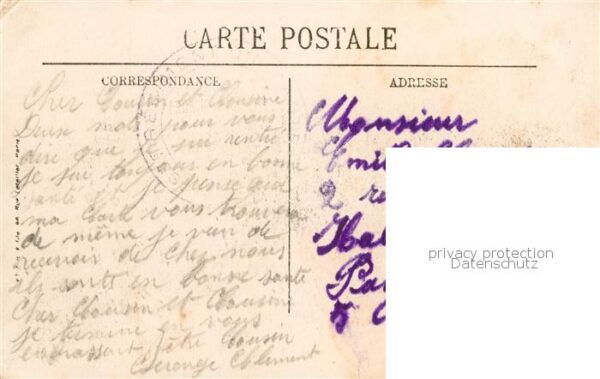 CARTE POSTALE
CORRESPONDANCE
Cher Cousin et Cousine
Deux mots pour vous
dire que je sui rentré
je sui toujours en bonne
santé et je pense que
ma carte vous trouvera
de même je vien de
recevoir de chez nous
ils sonts en bonne santé
Cher Cousin et Cousine
je termine en vous
embrassant votre Cousin
Clement
ADRESSE
Monsieur
2
privacy protection
Datenschutz